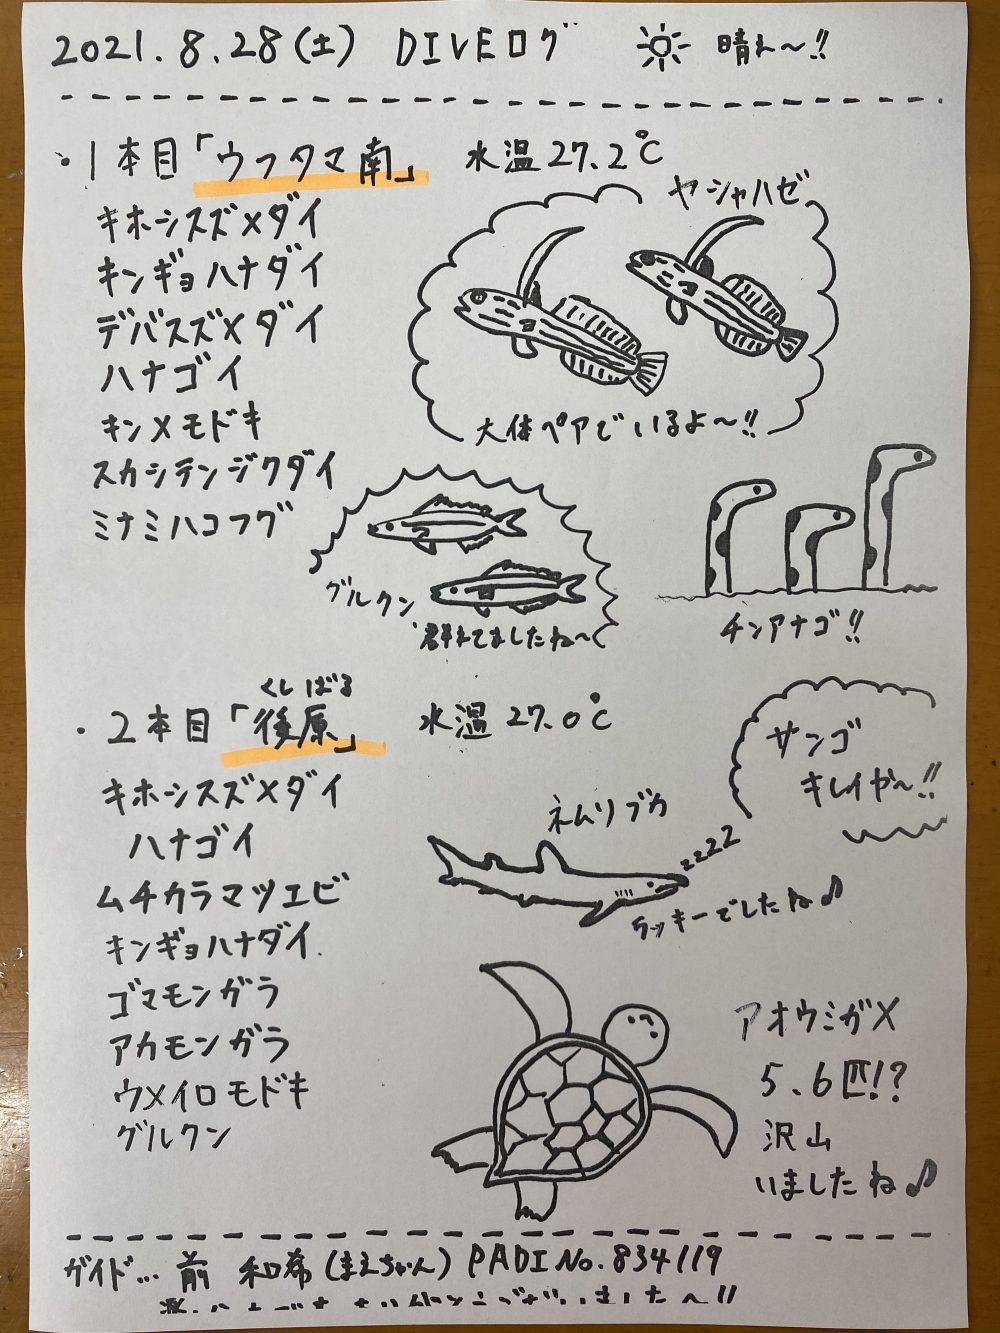 2021.8.28(土) DIVEログ 晴れ〜!!
・1本目「ウフタマ南」 水温27.2℃
ヤシャハゼ
大体ペアでいるよ〜!!
キホシスズメダイ
キンギョハナダイ
デバスズメダイ
ハナゴイ
キンメモドキ
スカシテンジクダイ
ミナミハコフグ
グルクン
群れてましたね〜
チンアナゴ!!
くしばる
・2本目「後原」 水温27.0℃
キホシスズメダイ
ハナゴイ
ムチカラマツエビ
キンギョハナダイ
ゴマモンガラ
アカモンガラ
ウメイロモドキ
グルクン
サンゴ
キレイや〜!!
ネムリブカ
zzzz
ラッキーでしたね♪
アオウミガメ
5、6匹!?
沢山
いましたね♪
ガイド… 前 和希(まえちゃん) PADI No.834119